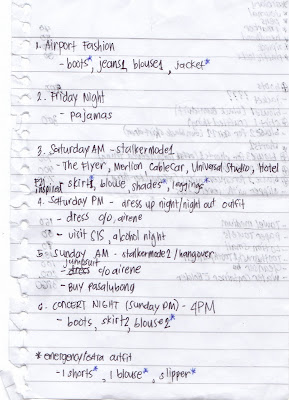 1. Airport Fashion
- boots*, jeans1, blouse1, jacket*
2. Friday Night
- pajamas
3. Saturday AM - stalkermode1
- The Flyer, Merlion CableCar, Universal Studio, Hotel
inspired skirt1, blouse, shades*, leggings*
4. Saturday PM - dress up night/night out outfit
- dress c/o airene
- visit GIS, alcohol night
5. Sunday AM - stalkermode2/hangover
- jumpsuit c/o airene
- Buy Pasalubong
6. CONCERT NIGHT (Sunday PM) - 4PM
- boots, skirt2, blouse2*
* emergency/extra outfit
- 1 shorts*, 1 blouse*, slipper*